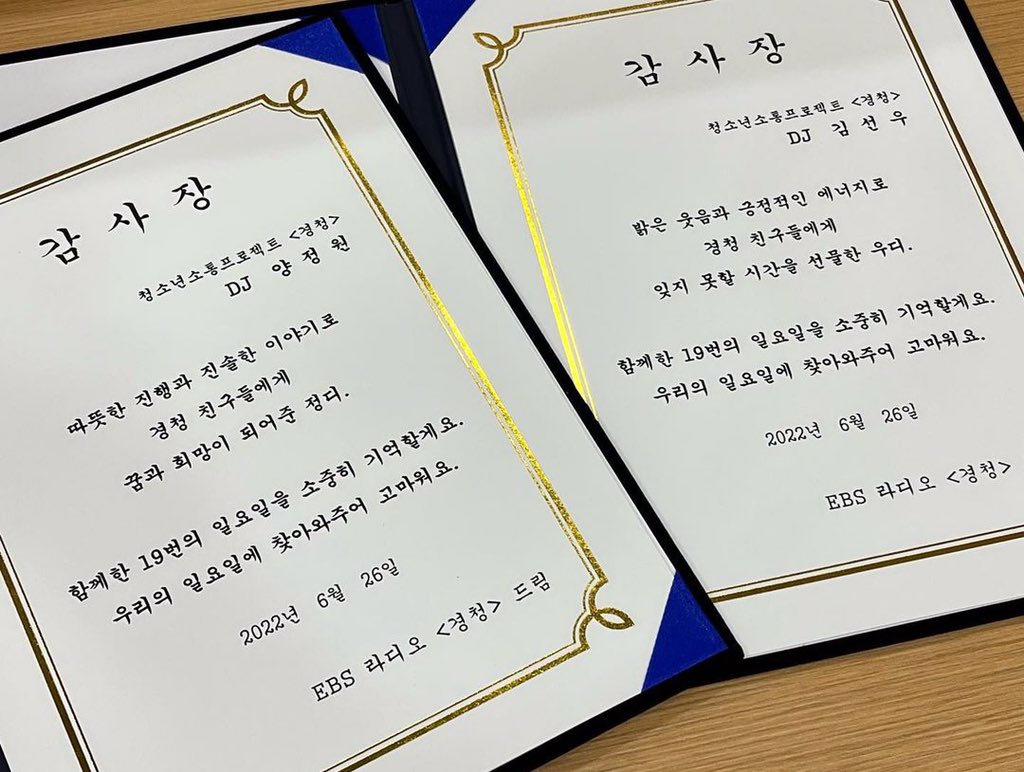 감 사 장
청소년소통프로젝트 <경청>
DJ 양 정 원
따뜻한 진행과 진솔한 이야기로
경청 친구들에게
꿈과 희망이 되어준 정디.
함께한 19번의 일요일을 소중히 기억할게요.
우리의 일요일에 찾아와주어 고마워요.
2022년 6월 26일
EBS 라디오 <경청> 드림
감 사 장
청소년소통프로젝트 <경청>
DJ 김 선 우
밝은 웃음과 긍정적인 에너지로
경청 친구들에게
잊지 못할 시간을 선물한 우디.
함께한 19번의 일요일을 소중히 기억할게요.
우리의 일요일에 찾아와주어 고마워요.
2022년 6월 26일
EBS 라디오 <경청>